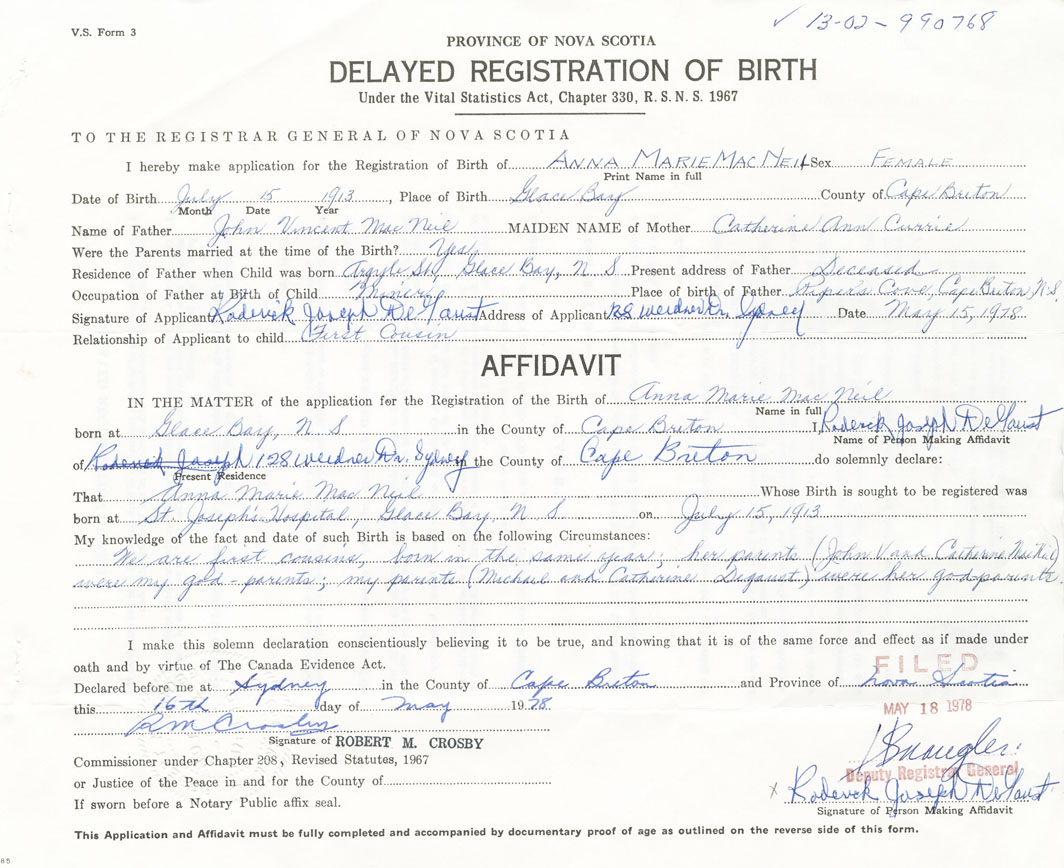 V.S. Form 3
✓ 13-02-990768
PROVINCE OF NOVA SCOTIA
DELAYED REGISTRATION OF BIRTH
Under the Vital Statistics Act, Chapter 330, R.S.N.S. 1967
TO THE REGISTRAR GENERAL OF NOVA SCOTIA
I hereby make application for the Registration of Birth of ANNA MARIE MAC NEIL Sex FEMALE
Print Name in full
Date of Birth July 15 1913, Place of Birth Glace Bay County of Cape Breton
Month Date Year
Name of Father John Vincent Mac Neil MAIDEN NAME of Mother Catherine Ann Currie
Were the Parents married at the time of the Birth? Yes
Residence of Father when Child was born Argyle St, Glace Bay, N S Present address of Father Deceased
Occupation of Father at Birth of Child Miner Place of birth of Father Cove, Cape Breton, N.S
Signature of Applicant Roderick Joseph DeGaust Address of Applicant 128 Weidner Dr. Sydney Date May 15, 1978
Relationship of Applicant to child First Cousin
AFFIDAVIT
IN THE MATTER of the application for the Registration of the Birth of Anna Marie Mac Neil
Name in full
born at Glace Bay, N S in the County of Cape Breton I, Roderick Joseph DeGaust
Name of Person Making Affidavit
of Roderick Joseph 128 Weidner Dr. Sydney in the County of Cape Breton do solemnly declare:
Present Residence
That Anna Marie Mac Neil Whose Birth is sought to be registered was
born at St. Joseph's Hospital, Glace Bay, N S on July 15, 1913
My knowledge of the fact and date of such Birth is based on the following Circumstances:
We are first cousins, born in the same year; her parents (John V and Catherine MacNeil)
were my gold-parents; my parents (Michael and Catherine Degaust) were her godparents.
I make this solemn declaration conscientiously believing it to be true, and knowing that it is of the same force and effect as if made under
oath and by virtue of The Canada Evidence Act.
FILED
Declared before me at Sydney in the County of Cape Breton and Province of Nova Scotia
this 16th day of May 1978
MAY 18 1978
RM Crosby
Signature of ROBERT M. CROSBY
Commissioner under Chapter 208, Revised Statutes, 1967
Deputy Registrar General
or Justice of the Peace in and for the County of
x Roderick Joseph DeGaust
If sworn before a Notary Public affix seal.
Signature of Person Making Affidavit
This Application and Affidavit must be fully completed and accompanied by documentary proof of age as outlined on the reverse side of this form.
85